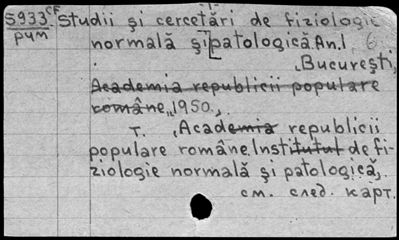 S933 CF Studii şi cercetări de fiziologie
рум normală şi patologică. An. 1, 6.
Bucureşti,
Academia republicii populare
române, 1950.
T. Academia republicii
populare române. Institutul de fi-
ziologie normală şi patologică,
см. след. карт.